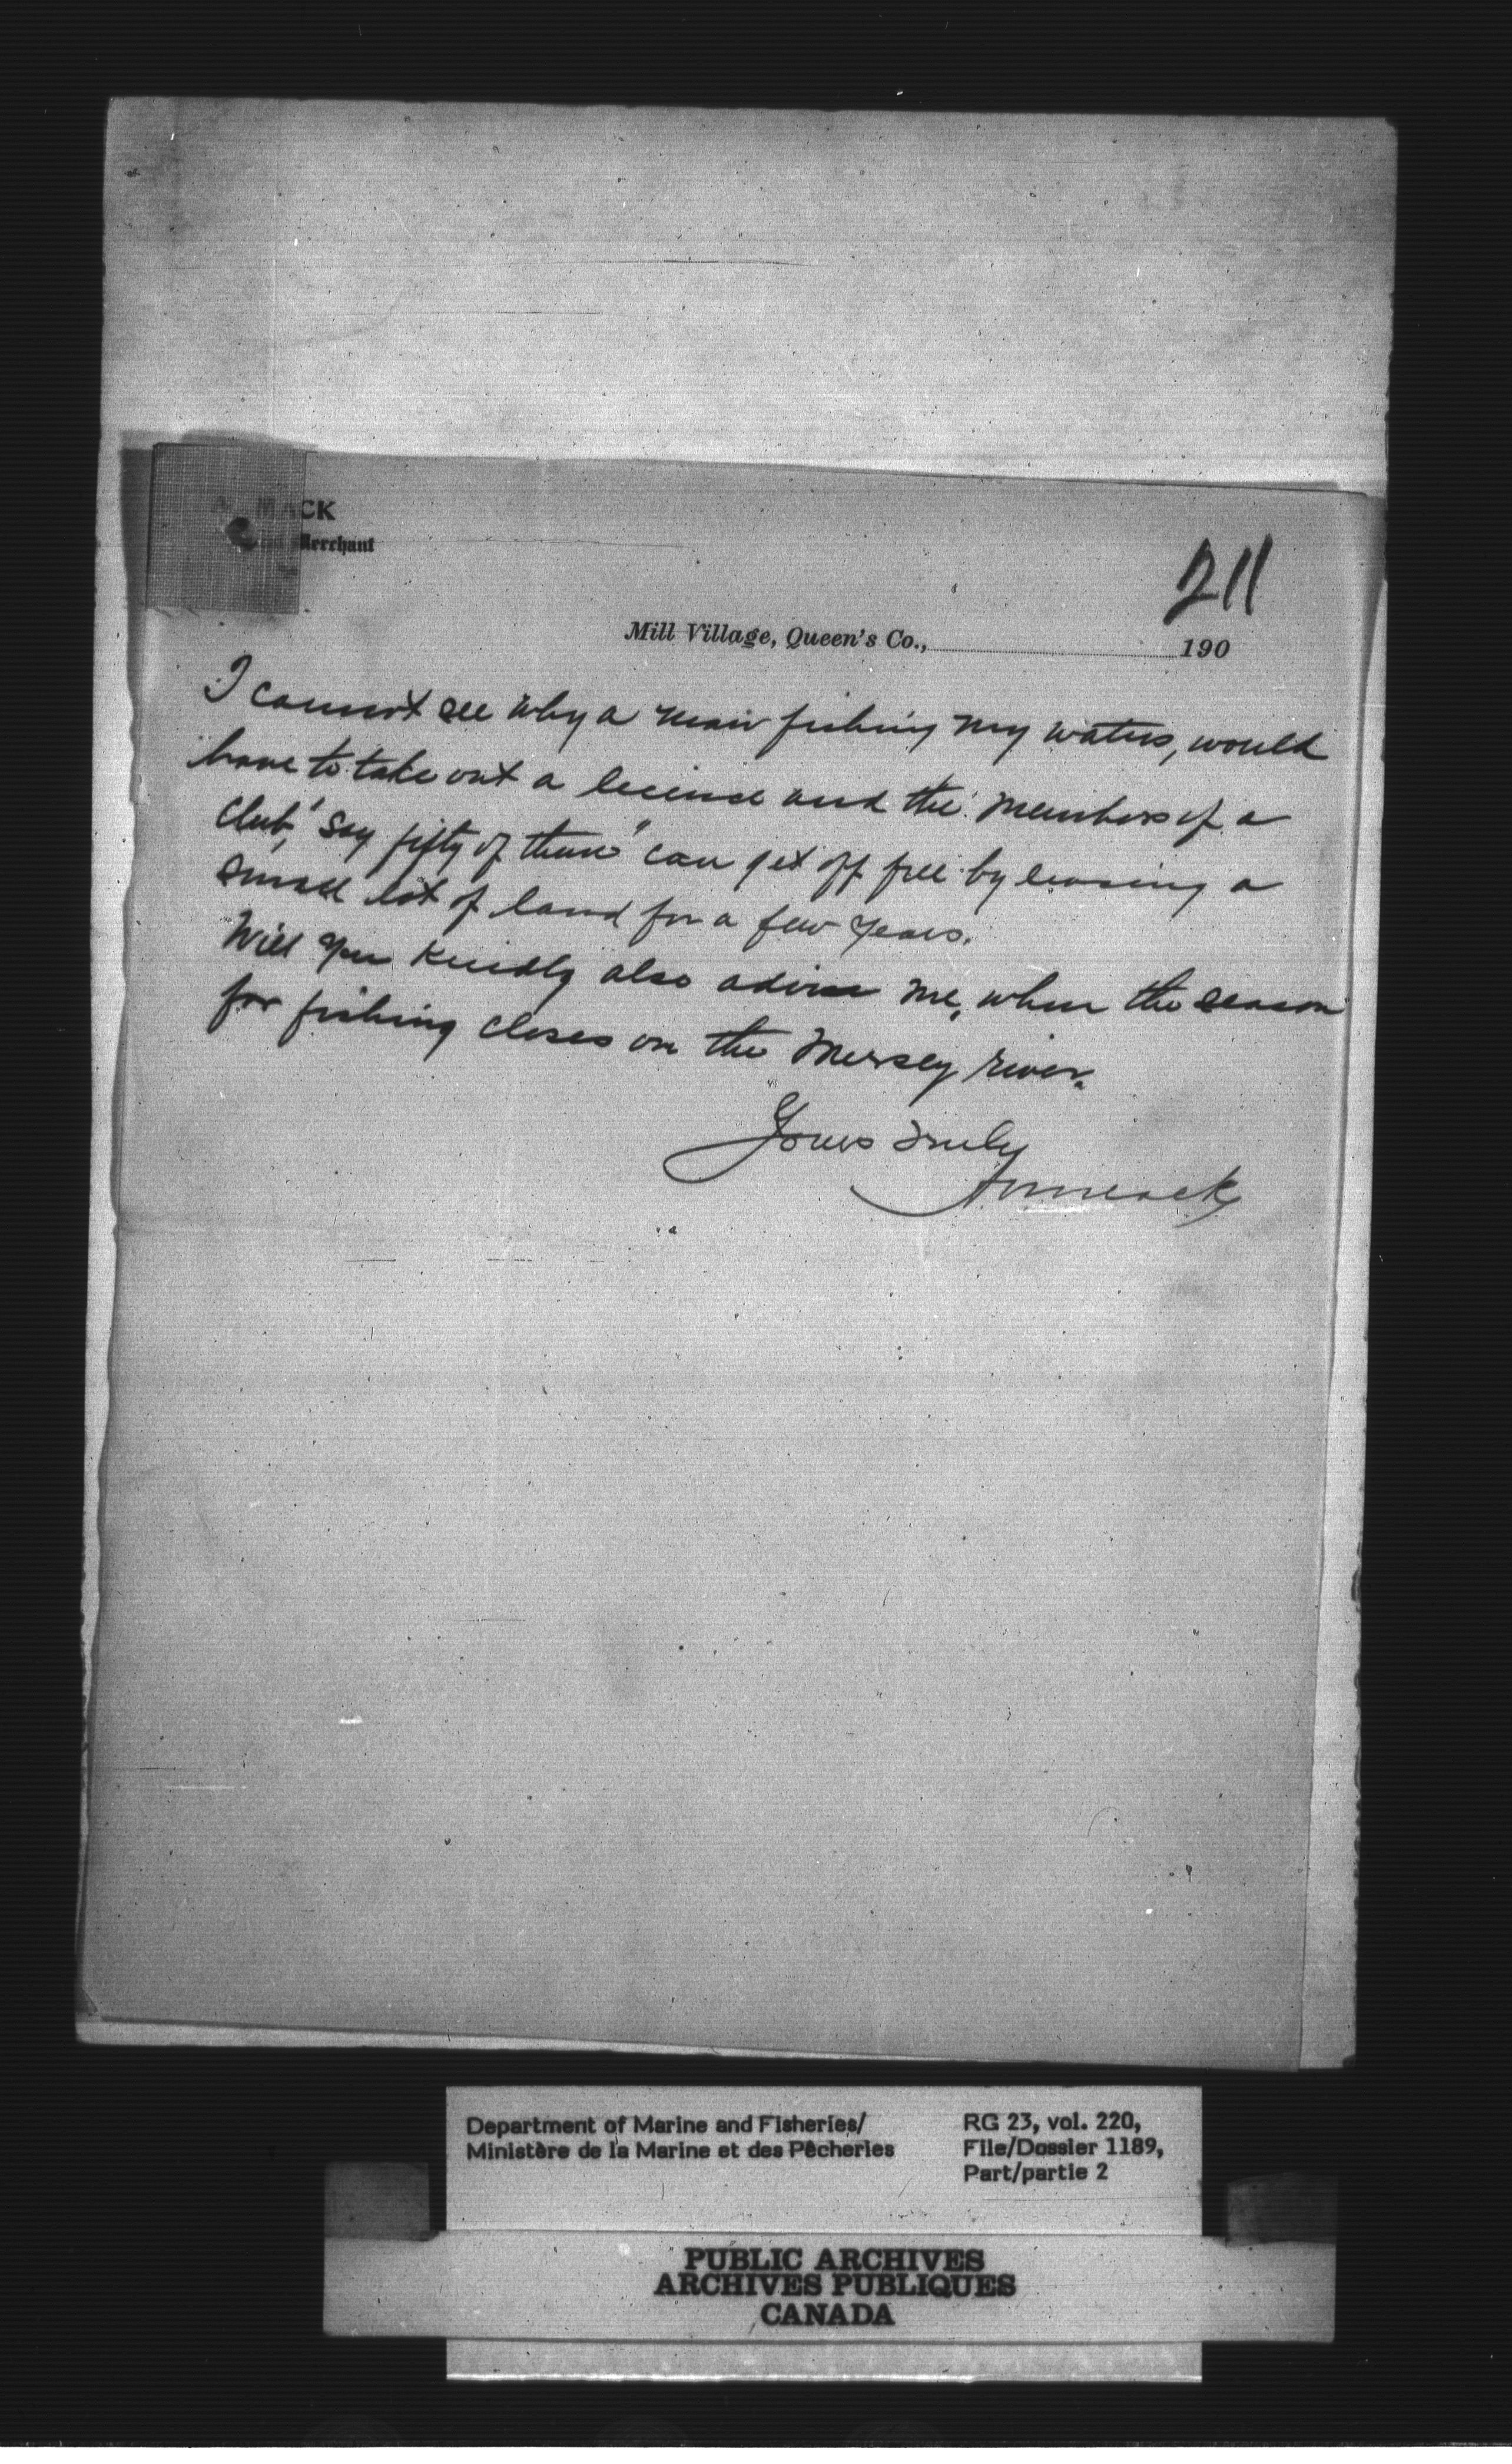 MACK
Merchant
211
Mill Village, Queen's Co., 190
I cannot see why a man fishing my waters, would
have to take out a license and the members of a
Club, "say fifty of them" can get off free by leasing a
small lot of land for a few years.
Will you kindly also advise me, when the season
for fishing closes on the Mersey river.
Yours Truly
Department of Marine and Fisheries/
Ministère de la Marine et des Pêcheries
RG 23, vol. 220,
File/Dossier 1189,
Part/partie 2
PUBLIC ARCHIVES
ARCHIVES PUBLIQUES
CANADA